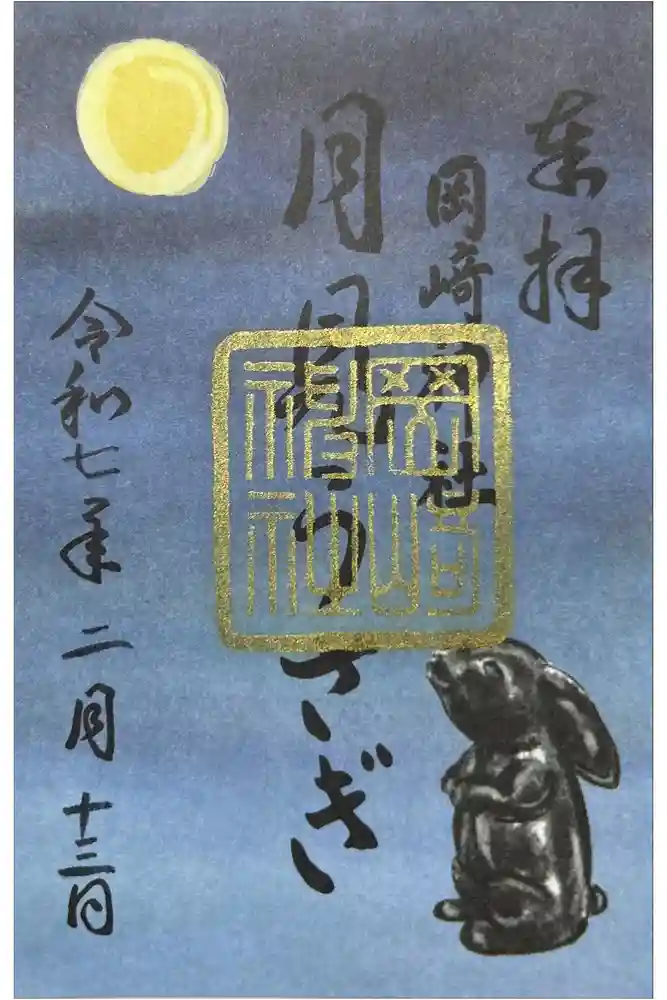 奉拝
岡崎神社
月見うさぎ
岡崎神社
令和七年二月十三日